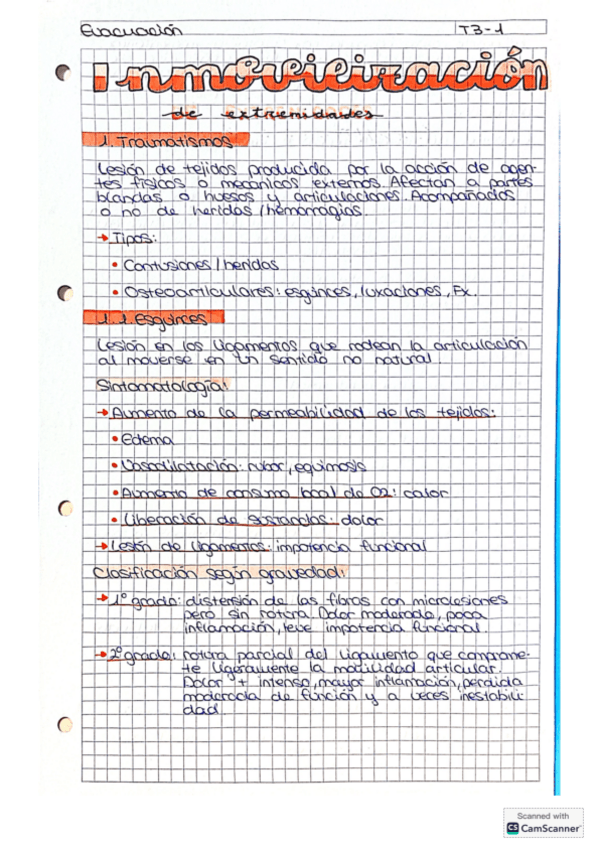 Evacuación T3-1
Inmovilización
de extremidades
1. Traumatismos
Lesión de tejidos producida por la acción de agen-
tes físicos o mecánicos externos. Afectan a partes
blandas o huesos y articulaciones. Acompañados
o no de heridas/hemorragias.
→ Tipos:
• Contusiones/heridas
• Osteoarticulares: esguinces, luxaciones, Fx.
1.1. Esguinces
Lesión en los ligamentos que rodean la articulación
al moverse en un sentido no natural.
Sintomatología:
→ Aumento de la permeabilidad de los tejidos:
• Edema
• Vasodilatación: rubor, equimosis
• Aumento de consumo local de O2: calor
• Liberación de sustancias: dolor
→ Lesión de ligamentos: impotencia funcional
Clasificación según gravedad:
→ 1º grado: distensión de las fibras con microlesiones
pero sin rotura. Dolor moderado, poca
inflamación, leve impotencia funcional.
→ 2º grado: rotura parcial del ligamento que comprome-
te ligeramente la movilidad articular.
Dolor + intenso, mayor inflamación, pérdida
moderada de función y a veces inestabili-
dad.
Scanned with
CS CamScanner